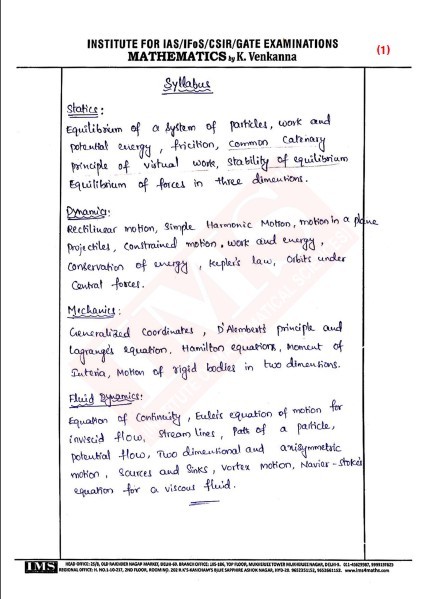 INSTITUTE FOR IAS/IFoS/CSIR/GATE EXAMINATIONS
MATHEMATICS by K. Venkanna
(1)
Syllabus
Statics :
Equilibrium of a system of particles, work and
potential energy, fricition, common catenary
principle of virtual work, stability of equilibrium
Equilibrium of forces in three dimentions.
Dynamics:
Rectilinear motion, simple Harmonic Motion, motion in a plane
Projectiles, constrained motion, work and energy,
Conservation of energy, kepler's law, Orbits under
Central forces.
Mechanics :
Generalized coordinates, D'Alembert's principle and
Lagrange's equation, Hamilton equations, moment of
Interia, Motion of rigid bodies in two dimentions.
Fluid Dynamics:
Equation of Continuity, Euler's equation of motion for
inviscid flow, Stream lines, Path of a particle,
potential flow, Two dimentional and axisymmetric
motion, Sources and Sinks, Vortex motion, Navier-stoke's
equation for a viscous fluid.
IMS
HEAD OFFICE: 25/8, OLD RAJENDER NAGAR MARKET, DELHI-60. BRANCH OFFICE: 105-106, TOP FLOOR, MUKHERJEE TOWER MUKHERJEE NAGAR, DELHI-9. 011-45629987, 9999197625
REGIONAL OFFICE: H. NO. 1-10-237, 2ND FLOOR, ROOM NO. 202 R.K'S-KANCHAM'S BLUE SAPPHIRE ASHOK NAGAR, HYD-20. 9652351152, 9652661152. www.ims4maths.com